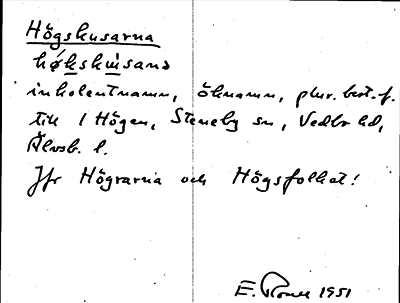 Högskusarna
høkskusana
inkolentnamn, öknamn, plur. best. f.
till 1 Högen, Steneby sn, Vedbo hd,
Älvsb. l.
Jfr Högrarna och Högsfolket!
E. 1951